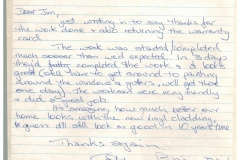 Dear Jim,
just writing in to say thanks for
the work done & also returning the warranty
card.
The work was started/completed
much sooner than we'd expected. In 3 days
they'd completed the work & it looks
great (still have to get around to painting
around the windows & gutters, we'll get there
one day). The workmen were very friendly
& did a great job.
It's amazing how much better our
home looks with the new vinyl cladding,
& guess it'll still look as good in 10 years time
Thanks again,